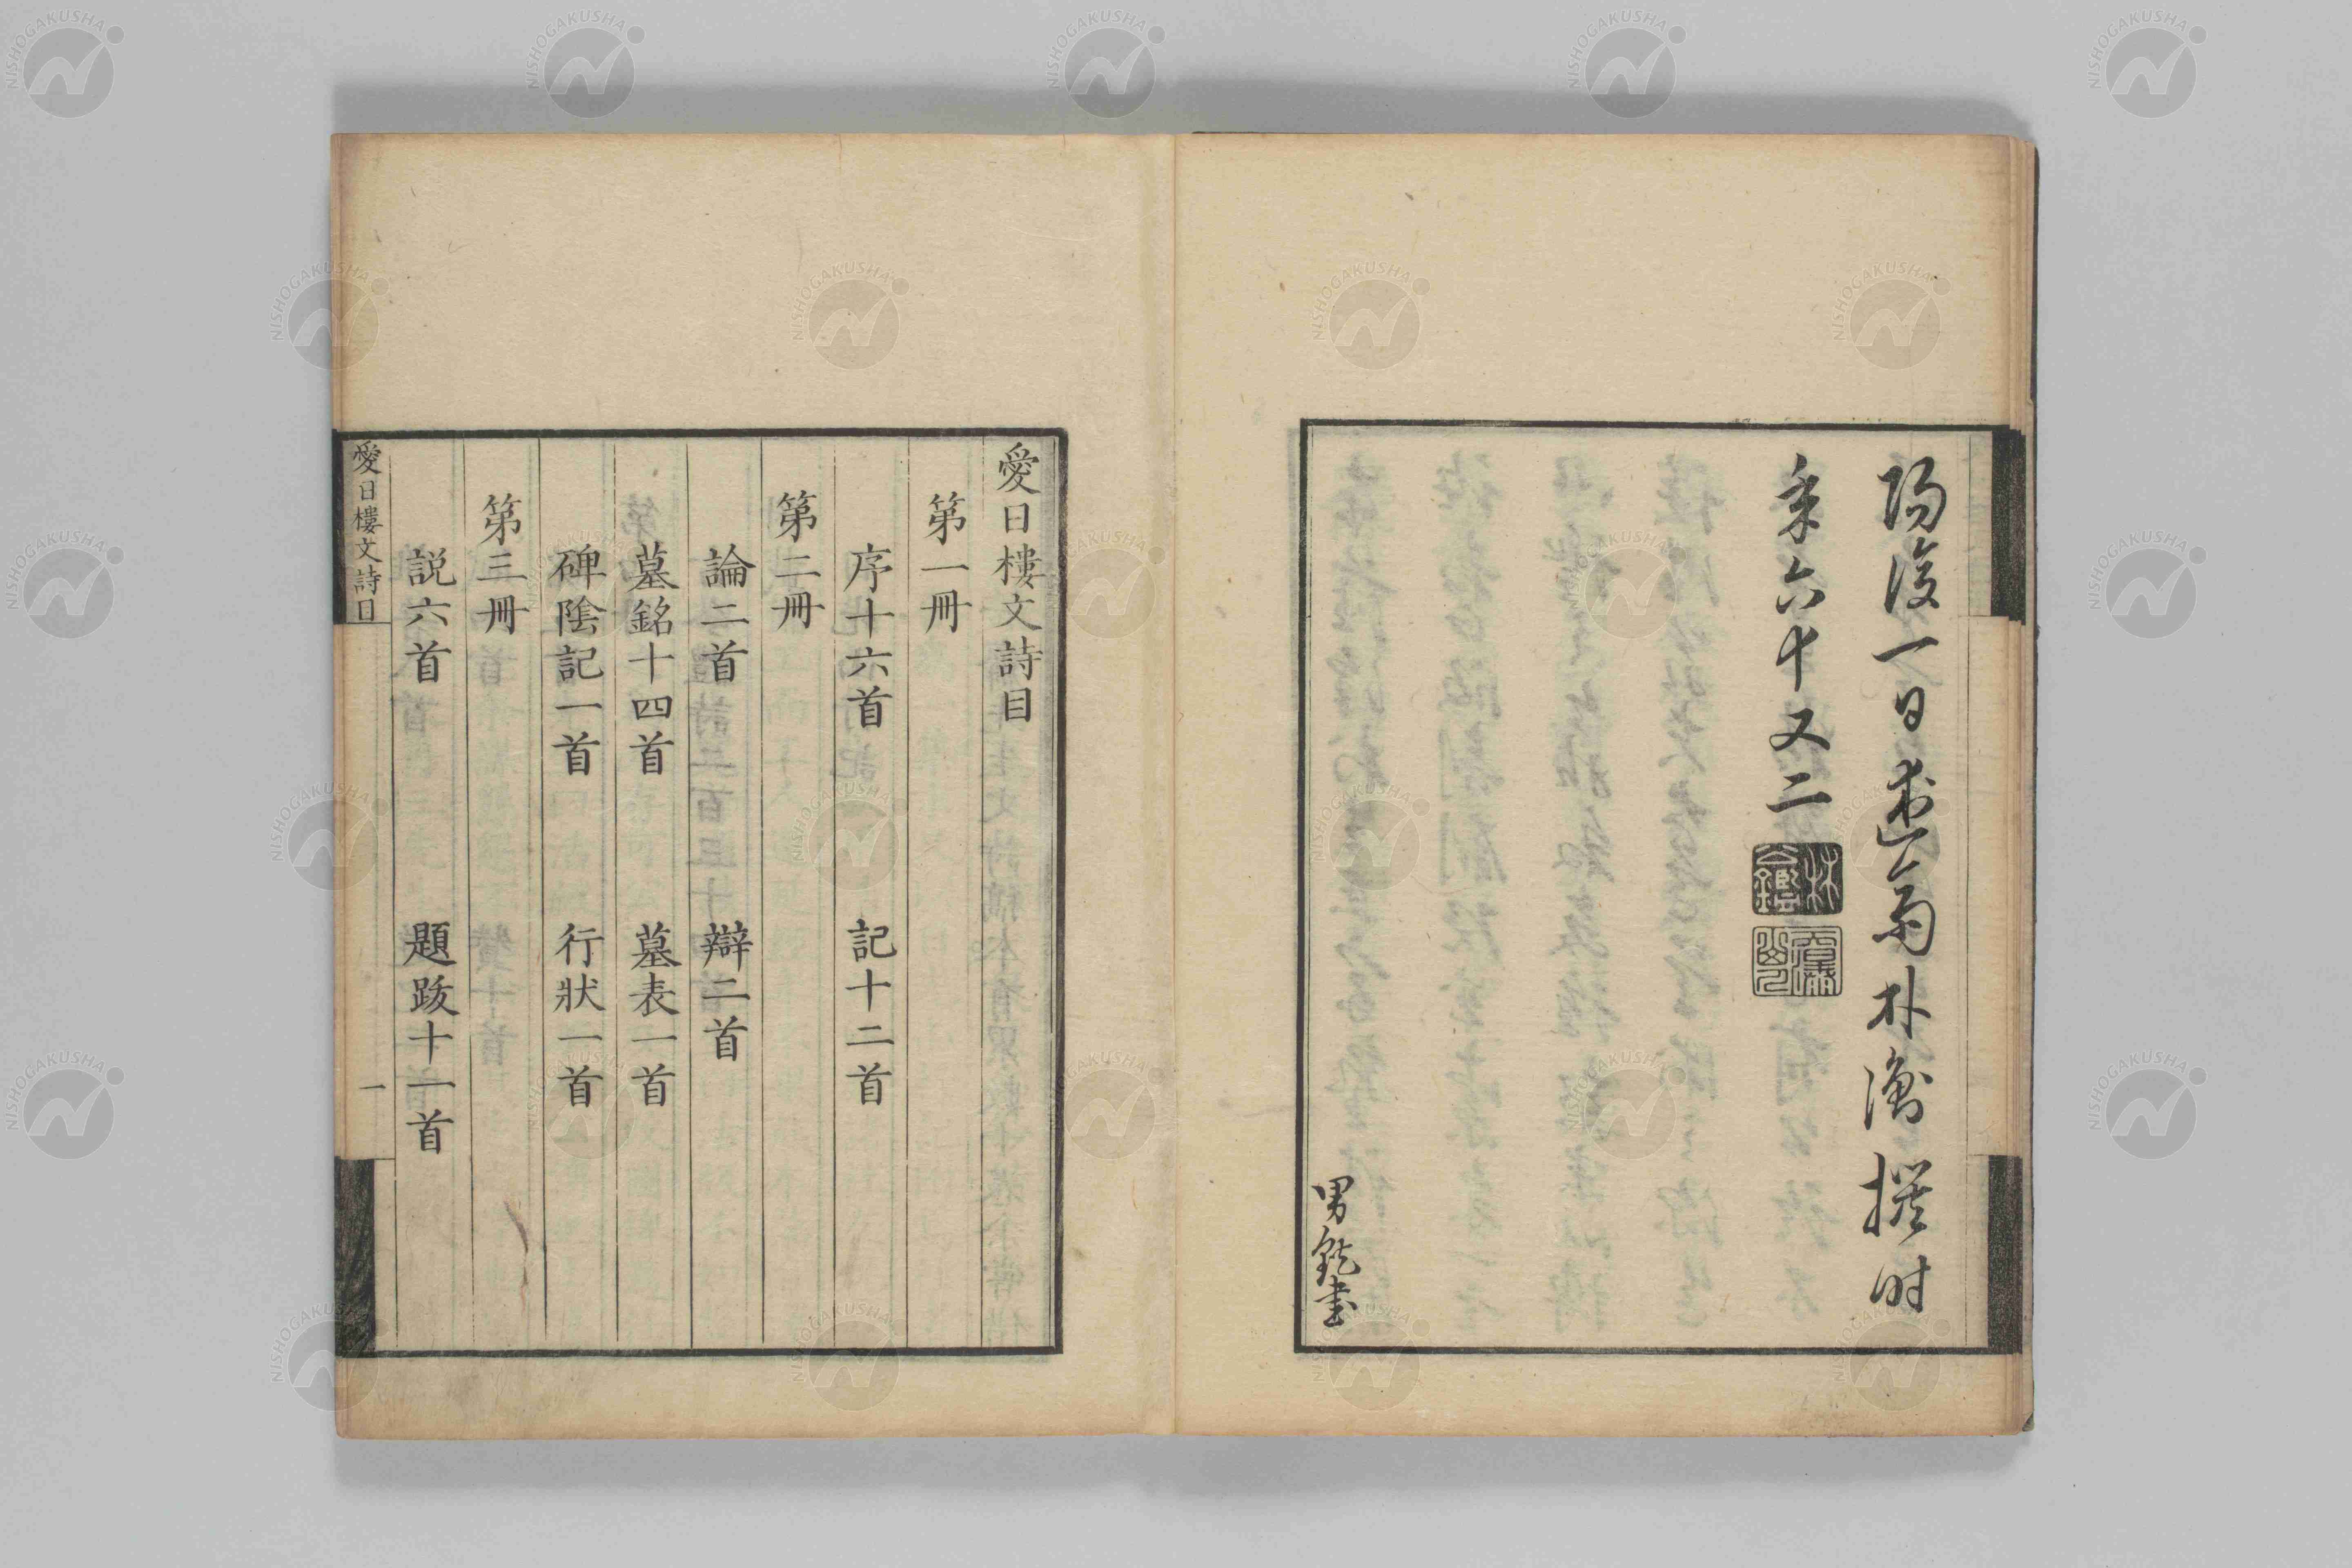 陽後一日述斎林衡撰时
年六十又二
男 書
愛日樓文詩目
第一冊
序十六首 記十二首
第二冊
論二首 辯二首
墓銘十四首 墓表一首
碑陰記一首 行狀一首
第三冊
説六首 題跋十一首
愛日樓文詩目 一
NISHOGAKUSHA